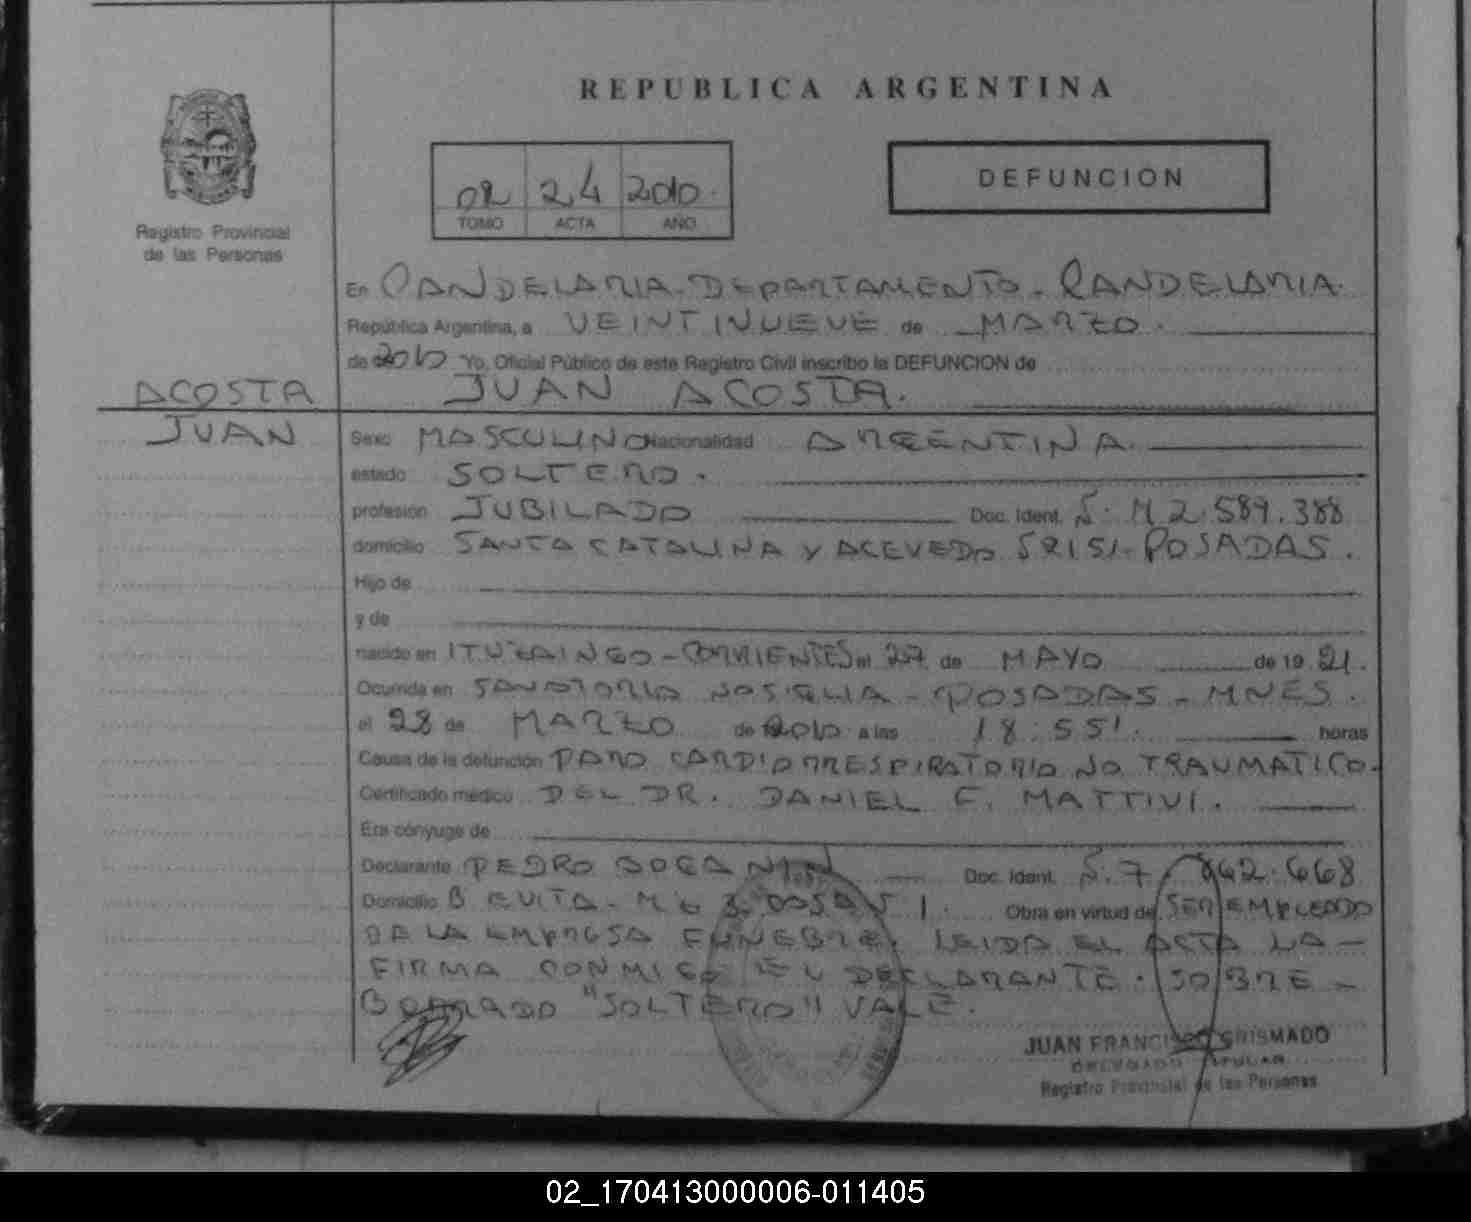 REPUBLICA ARGENTINA
02 24 2010.
TOMO ACTA AÑO
DEFUNCION
Registro Provincial
de las Personas
En CANDELARIA. DEPARTAMENTO. CANDELARIA.
República Argentina, a VEINTINUEVE de MARZO.
de 2010 Yo, Oficial Público de este Registro Civil inscribo la DEFUNCION de
ACOSTA JUAN ACOSTA.
JUAN Sexo MASCULINO Nacionalidad ARGENTINA.
estado SOLTERO.
profesión JUBILADO Doc. Ident. M 2.589.388
domicilio SANTA CATALINA Y ACEVEDO POSADAS.
Hijo de
y de
nacido en ITUZAINGO - CORRIENTES el 27 de MAYO de 19 21.
Ocurrida en SANATORIO POSADAS - MNES.
el 28 de MARZO de 2010 a las 18:55'. horas
Causa de la defunción PARO CARDIORRESPIRATORIO NO TRAUMATICO.
Certificado médico DEL DR. DANIEL F. MATTIVI.
Era cónyuge de
Declarante PEDRO Doc. Ident. 7 668
Domicilio B EVITA - Obra en virtud de SER EMPLEADO
DE LA EMPRESA FUNEBRE. LEIDA EL ACTA LA -
FIRMA CONMIGO EL DECLARANTE. SOBRE -
BORRADO "SOLTERO" VALE.
JUAN FRANCISCO GRISMADO
DELEGADO TITULAR
Registro Provincial de las Personas
02_170413000006-011405